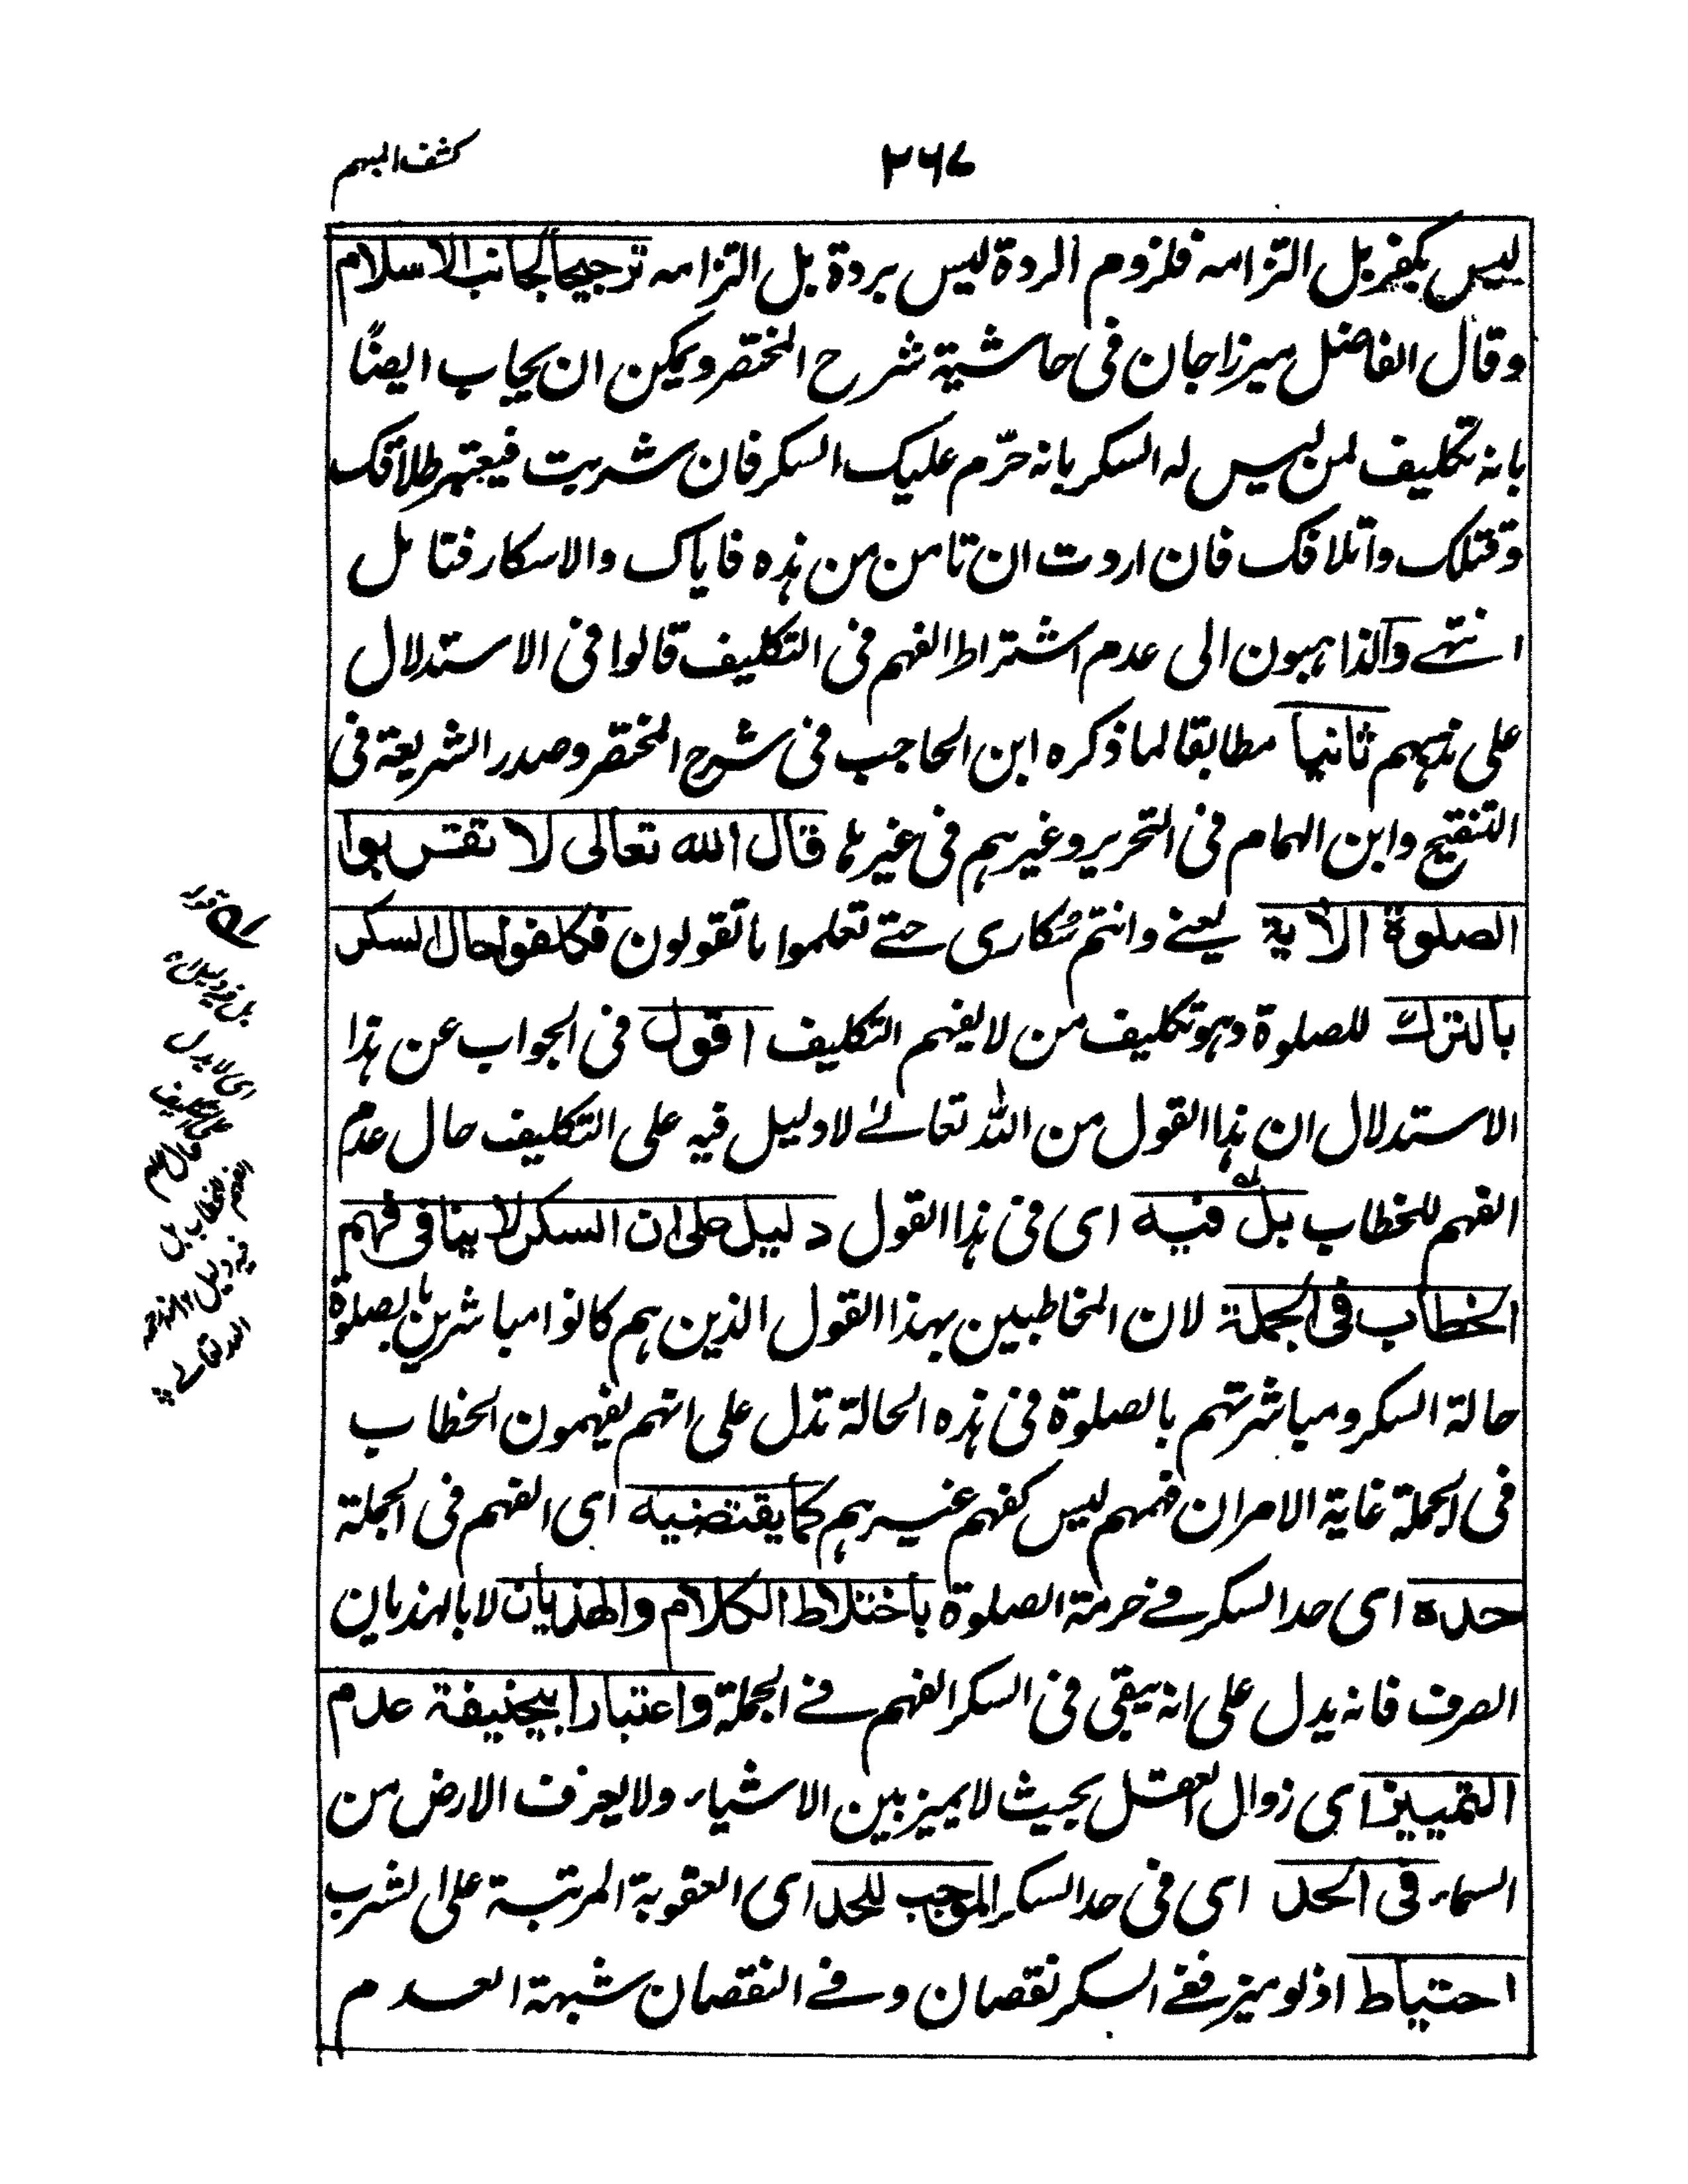 كشف المبهم
٢٦٧
ليس بكفر بل التزامه فلزوم الردة ليس بردة بل التزامه ترجيحا لجانب الاسلام
وقال الفاضل ميرزاجان فى حاشية شرح المختصر ويمكن ان يجاب ايضًا
بانه تكليف لمن ليس له السكر بانه حرّم عليك السكر فان شربت فيعتبر طلاقك
وقتلك واتلافك فان اردت ان تامن من هذه فاياك والاسكار فتامل
انتهے والذاهبون الى عدم اشتراط الفهم فى التكليف قالوا فى الاستدلال
على مذهبهم ثانيا مطابقا لما ذكره ابن الحاجب فى شرح المختصر وصدر الشريعة فى
التنقيح وابن الهمام فى التحرير وغيرهم فى غيرها قال الله تعالى لا تقربوا
الصلوة الآية يعنے وانتم سُكارى حتے تعلموا ما تقولون فكلفوا حال السكر
بالترك للصلوة وهو تكليف من لا يفهم التكليف اقول فى الجواب عن هذا
الاستدلال ان هذا القول من الله تعالےٰ لا دليل فيه على التكليف حال عدم
الفهم للخطاب بل فيه اى فى هذا القول دليل على ان السكر لا ينافى فهم
الخطاب فى الجملة لان المخاطبين بهذا القول الذين هم كانوا مباشرين بالصلوة
حالة السكر ومباشرتهم بالصلوة فى هذه الحالة تدل على انهم يفهمون الخطاب
فى الجملة غاية الامر ان فهمهم ليس كفهم غيرهم كما يقتضيه اى الفهم فى الجملة
حده اى حد السكر فے حرمة الصلوة باختلاط الكلام والهذيان لا بالهذيان
الصرف فانه يدل على انه يبقى فى السكر الفهم فے الجملة واعتبار ابيحنيفة عدم
التمييز اى زوال العقل بحيث لا يميز بين الاشياء ولا يعرف الارض من
السماء فى الحد اى فى حد السكر الموجب للحد اى العقوبة المرتبة على الشرب
احتياط اذ لو ميز ففے السكر نقصان وفے النقصان شبهة العدم
له قوله
بل فيه دليل اه
اى لا يدل
على التكليف
حال عدم
الفهم للخطاب بل
فيه دليل ١٢ منه رحمه
الله تعالے